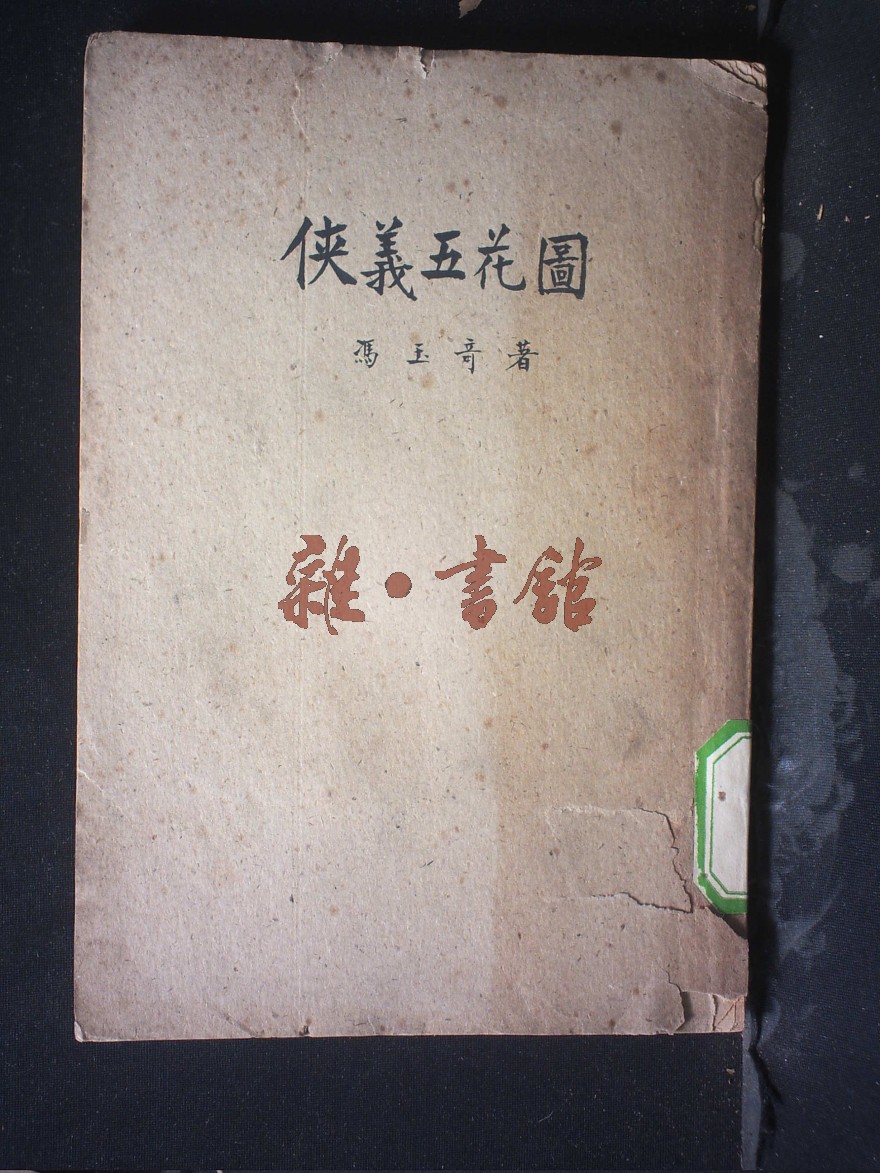 俠義五花圖
馮玉奇著
雜·書館